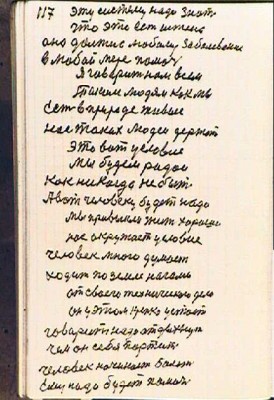 117 Эту систему надо знать
что это вот истина
оно должно с любому заболевани
в любой мере помоч
Я говорит нам всем
Таким людям как мы
Есть в природе живые
нас таких людей держат
Это вот условие
мы будем рады
Как никогда не быть
А вот человеку будет надо
мы привыкли жить хорошо
нас окружает условие
человек много думает
ходит по земле ногами
от своего технического дело
он у этом крепко устает
говорит надо отдохнуть
чем он себя портит
человек начинает болеть
Ему надо будет помоч